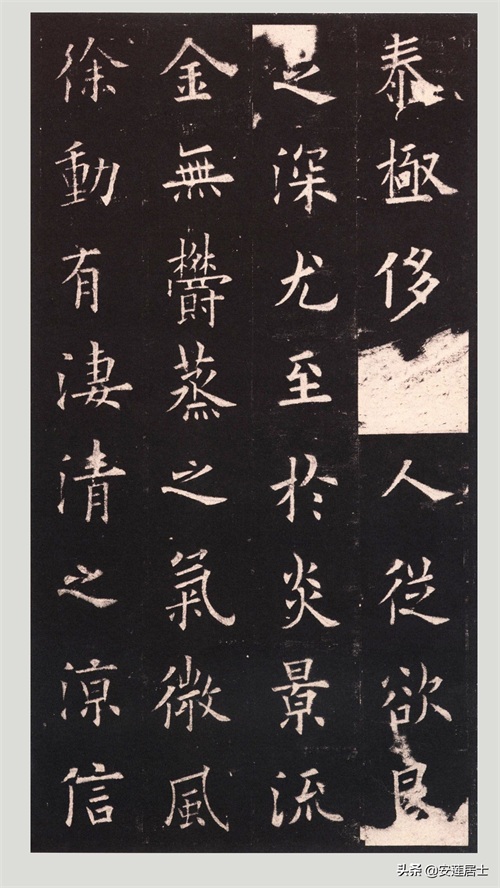 泰極侈人從欲良
足深尤至於炎景流
金無鬱蒸之氣微風
徐動有淒清之涼信
头条 @安莲居士